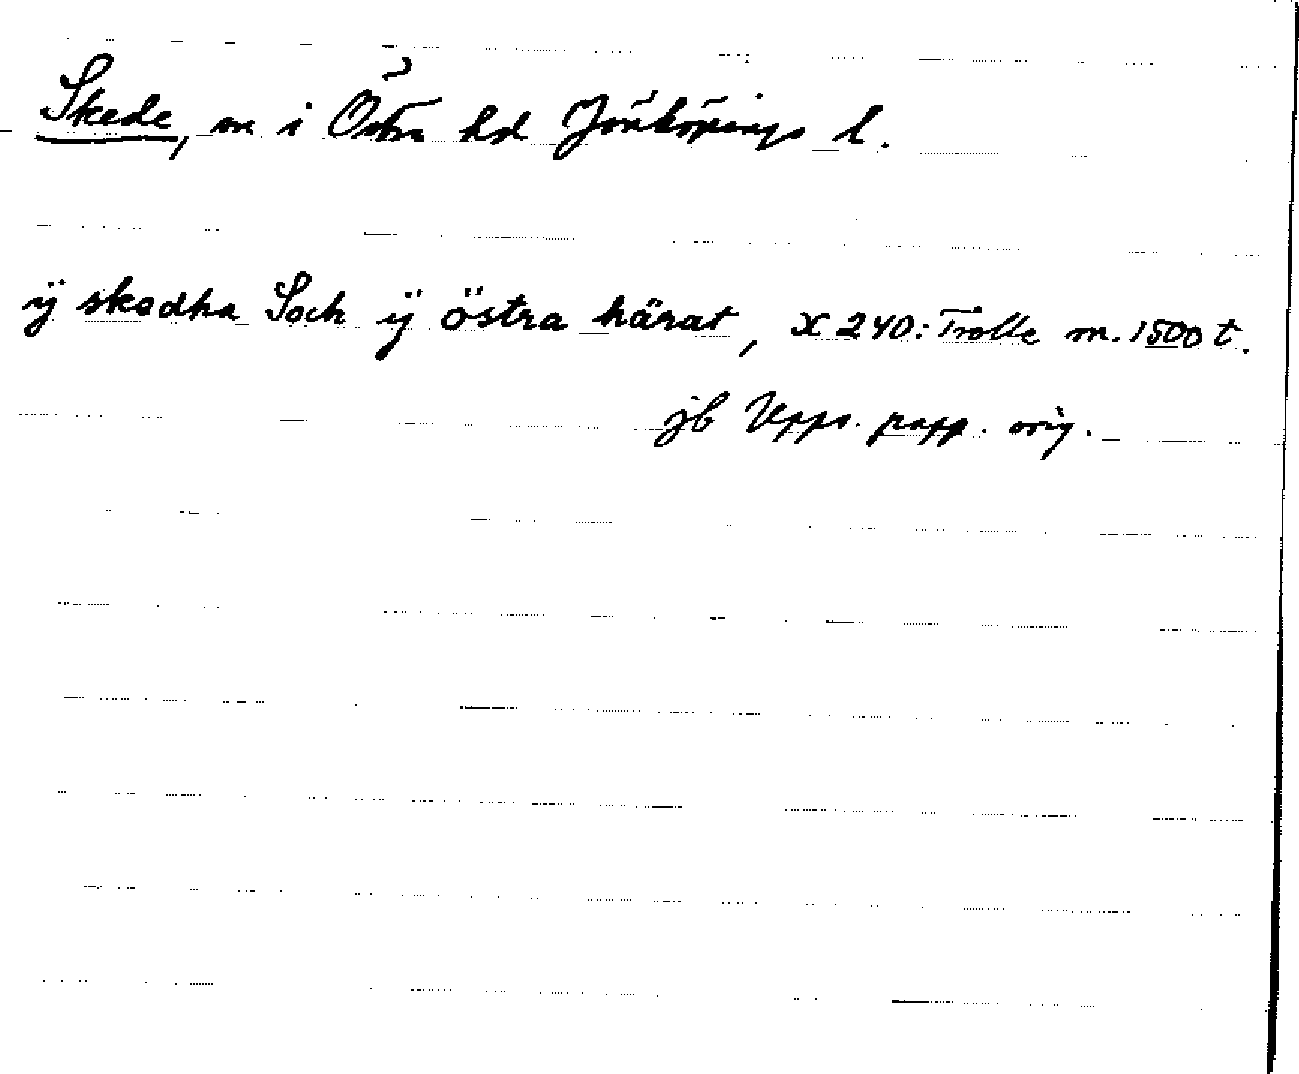 Skede, sn i Östra hd Jönköpings l.
ÿ skedha Sock ÿ östra härat, X 240: Trolle m. 1500 t.
jb Upps. papp. orig.